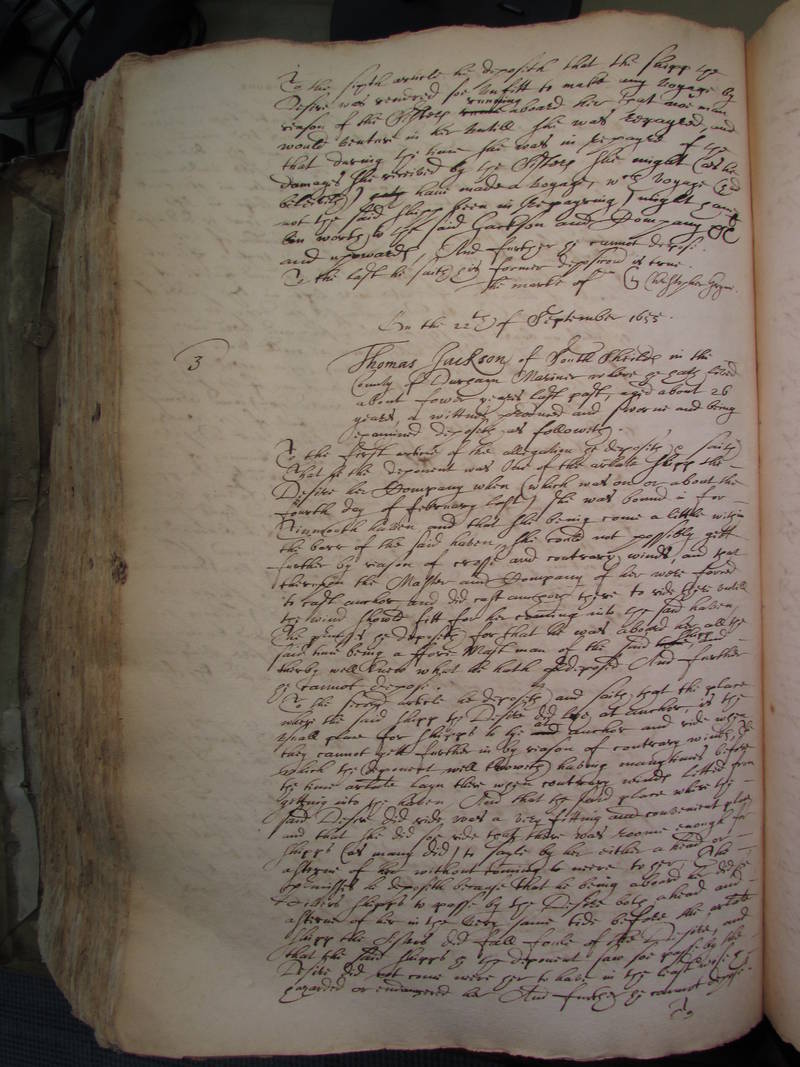 To the sixth article he deposeth that the shipp the
Desire was rendred soe unfitt to make any voyage by
reason of the Sisters running aboard her that noe man
would venture in her untill she was repayred, and
that during the time she was in repayre of the
damages she received by the Sisters she might (as he
beleeveth) have made a voyage, wch voyage (had
not the said shipp been in repayring) might have
ben worth to the said Jackson and Company
and upwards, And further he cannot depose.
To the last he saith his former deposition is true.
the marke of Christopher
On the 22th of September 1655.
3
Thomas Jackson of South Sheilds in the
County of Durham Mariner where he hath lived
about fower yeares last past, aged about 26
yeares, a wittnes produced and sworne and being
examined deposeth as followeth.
To the first article of the allegation he deposeth saith
That he the deponent was one of the arlate shipp the
Desire her Company when (which was on or about the
fourth day of february last) she was bound in for
Tinmouth haven and that she being come a little within
the barr of the said haven she could not possibly gett
further by reason of crosse and contrary winds, and that
thereupon the Master and Company of her were forced
to cast anchor and did cast anchor there to ride there untill
the wind should fitt for her coming into the said haven,
The premisses he deposeth for that he was aboard her all the
said time being a fore Mast man of the said shipp and
therby well knew what he hath deposed And further
he cannot depose.
To the second article he deposeth and saith that the place
where the said shipp the Desire did lye at anchor, is the
usuall place for shipps to lye at anchor and ride when
they cannot gett further in by reason of contrary winds,
which the deponent well knoweth having many times before
the time arlate layn there when contrary winds letted from
getting into the haven And that the said place where the
said Desire did ride, was a very fitting and convenient place
and that she did soe ride that there was roome enough for
shipps (as many did) to sayle by her either a head or
asterne of her without coming neere to her, The
premisses he deposeth because that he being aboard her did see
others shipps to passe by the Desire both ahead and
asterne of her in the very same tide before the arlate
shipp the Sisters did fall foule of the Desire, and
that the said shipps he the deponent saw soe passe by the
Desire did not come neere her to have in the least
hazarded or endangered her And further he cannot depose.
To